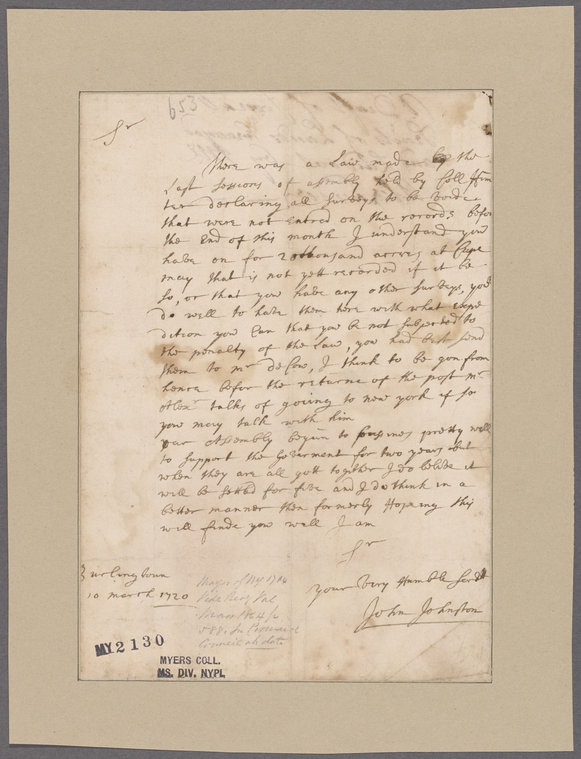 653
Sr
There was a Law made by the
Last sessions of assembly held by Coll Hun
ter declaring all Surveys to be voide
that were not Entred on the records befor
the End of this month I understand you
have on for 2 thousand acrers at Cape
may that is not yett recorded if it be
So, or that you have any other Surveys, you
do well to have them here with what expe
dition you Can that you be not Subjected to
the penalty of the Law, you had best send
them to mr deCow, I think to be gon from
hence befor the returne of the post mr
Alexr talks of going to new york if so
you may talk with him
our Assembly begin to
pretty well
to support the Goverment for two years but
when they are all gott together I do beleve it
will be settld for five and I do think in a
better manner then formerly Hopeing this
will finde you well I am
Sr
your Very Humble Servt
John Johnston
Burlingtoun
10 march 1720
Mayor of NY 1714
MY 2130
MYERS COLL.
MS. DIV. NYPL